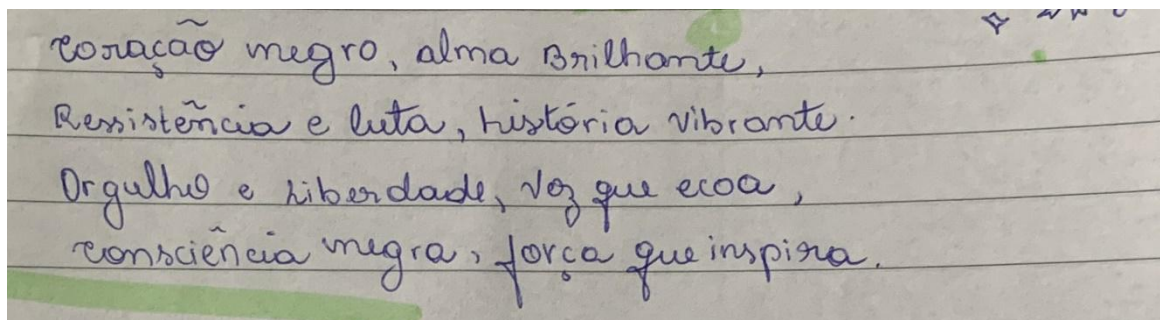 Coração negro, alma Brilhante,
Ressistência e luta, história vibrante.
Orgulho e Liberdade, Voz que ecoa,
Consciência negra, força que inspira.